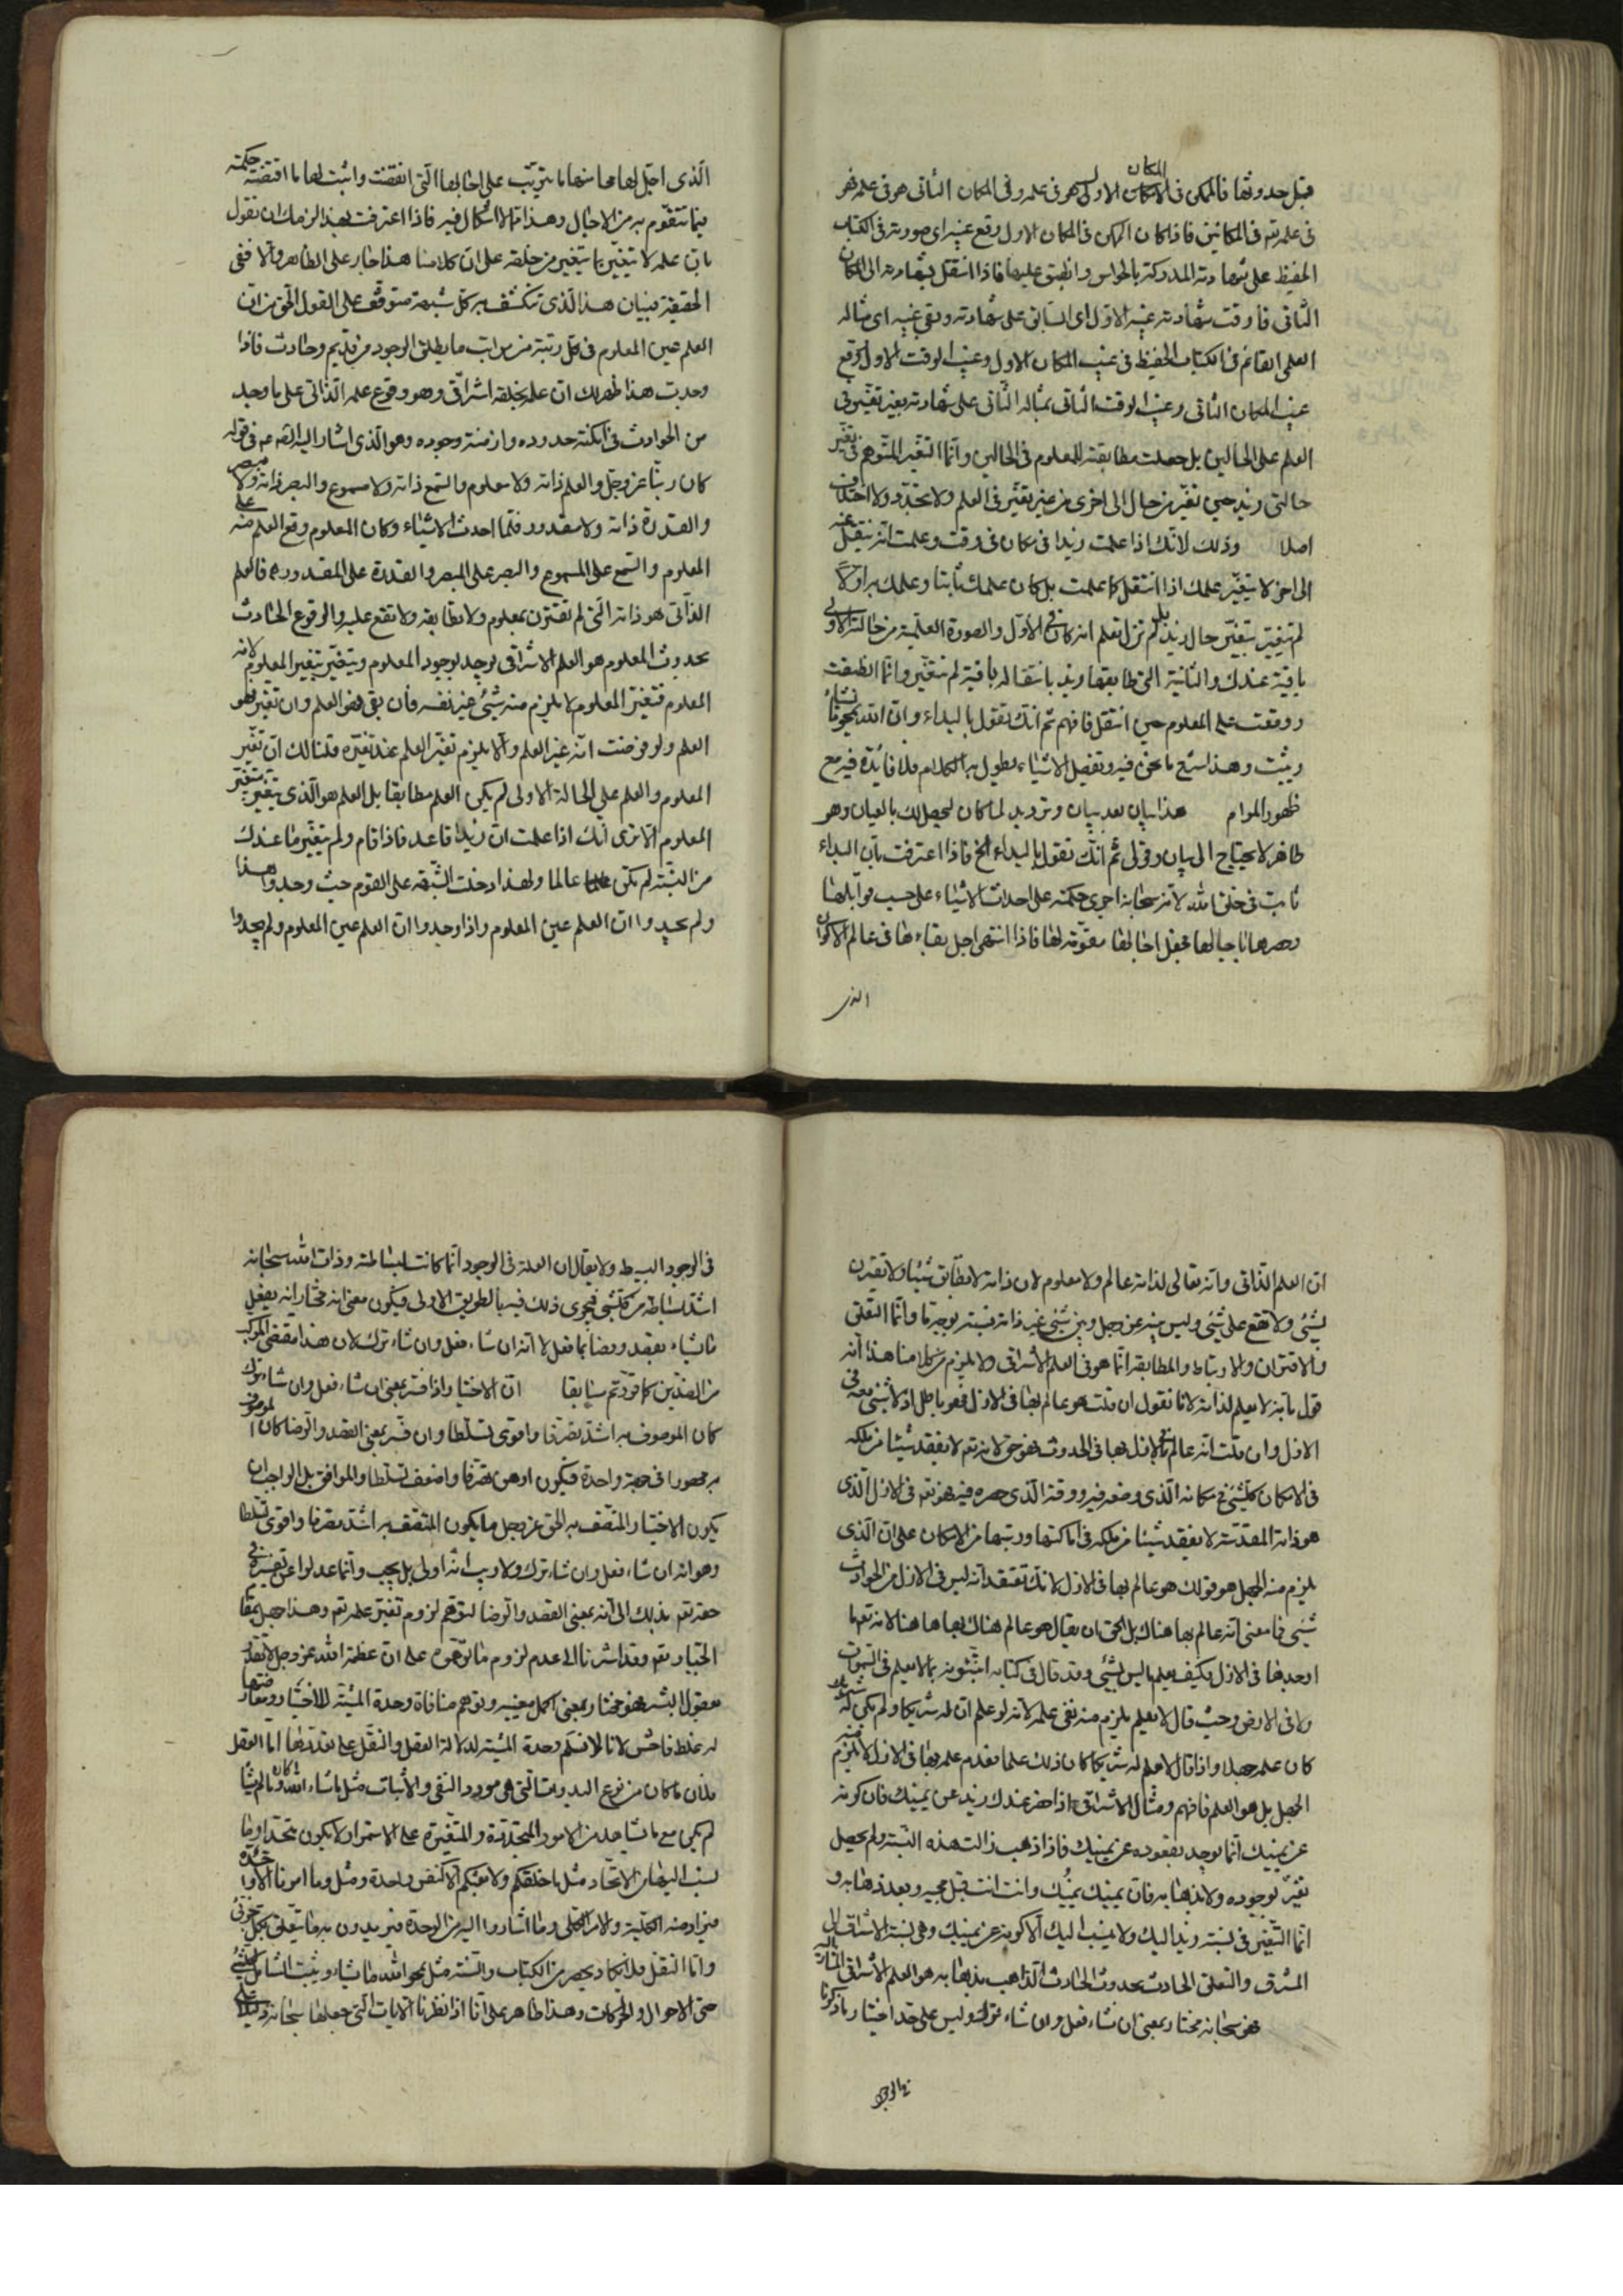 قبل حدوثها فالممكن في المكان الاول هو في علمه وفي المكان الثاني هو في علمه فهو
في علمه تع في المكانين فاذا كان الممكن في المكان الاول وقع غيبه اى صورته في الكتاب
الحفيظ على شهادته المدركة بالحواس وانطبق عليها فاذا انتقل بشهادته الى المكان
الثاني فارقت شهادته غيبه الاول اى السابق على شهادته وبقى غيبه اى مثاله
العلمى القائم في الكتاب الحفيظ في غيب المكان الاول وغيب الوقت الاول ووقع
غيب المكان الثاني وغيب الوقت الثاني بمثاله الثاني على شهادته بغير تغيّر في
العلم على الحالين بل حصلت مطابقته للمعلوم في الحالين وانّما التغيّر المتوهم في تغيّر
حالتى زيد حين تغيّر من حال الى اخرى من غير تغيّر في العلم ولا تجدّد ولا اختلاف
اصلا وذلك لانّك اذا علمت زيدا في مكان في وقت وعلمت انه ينتقل عنه
الى اخر لا يتغيّر علمك اذا انتقل كما علمت بل كان علمك ثابتا وعلمك به اولا
لم يتغيّر بتغيّر حال زيد بل لم تزل تعلم انه كان في الاوّل والصورة العلمية من حالته الاولى
باقية عندك والثانية التى طابقها زيد بانتقاله باقية لم تتغيّر وانّما انطبقت
ووقعت على المعلوم حين انتقل فافهم ثم انّك تقول بالبداء وان الله يمحو ما يشاء
ويثبت وهذا منبع ما نحن فيه وتفصيل الاشياء يطول به الكلام فلا فائدة فيه مع
ظهور المرام هذا بيان بعد بيان وترديد لما كان ليحصل لك بالعيان وهو
ظاهر لا يحتاج الى بيان وقولى ثم انّك تقول بالبداء الخ فاذا اعترفت بأن البداء
ثابت في خلق الله لانه سبحانه اجرى حكمته على احداث الاشياء على حسب قوابلها
وحصرها باجالها فجعل اجالها مقوّمة لها فاذا انتهى اجل بقاءها في عالم الاكوان
الذى
الّذى اجّل لها محا منها ما يترتب على اجالها التى انقضت واثبت لها ما اقتضته حكمته
فيما تتقوّم به من الاجال وهذا ممّا لا اشكال فيه فاذا اعترفت بهذا لزمك ان تقول
بان علمه لا يتغيّر بما يتغيّر من خلقه على ان كلامنا هذا جار على الظاهر والّا ففى
الحقيقة فبيان هذا الّذى تنكشف به كلّ شبهة متوقّف على القول الحق من ان
العلم عين المعلوم في كلّ رتبة من مراتب ما يطلق الوجود من قديم وحادث فاذا
وجدت هذا ظهر لك ان علمه بخلقه اشراقى وهو وقوع علمه الذاتى على ما وجد
من الحوادث في امكنة حدوده وازمنة وجوده وهو الّذى اشار اليه الصادق ع في قوله
كان ربّنا عز وجل والعلم ذاته ولا معلوم والسمع ذاته ولا مسموع والبصر ذاته ولا مبصر
والقدرة ذاته ولا مقدور فلمّا احدث الاشياء وكان المعلوم وقع العلم منه على
المعلوم والسمع على المسموع والبصر على المبصر والقدرة على المقدور ه فالعلم
الذاتى هو ذاته التى لم تقترن بمعلوم ولا تطابقه ولا تقع عليه والوقوع الحادث
بحدوث المعلوم هو العلم الاشراقى يوجد بوجود المعلوم ويتغيّر بتغيّر المعلوم لانه
المعلوم فتغيّر المعلوم لا يلزم منه شيئ غير نفسه فان بقى فهو العلم وان تغيّر فهو
العلم ولو فرضت انّه غير العلم والّا يلزم تغيّر العلم عند تغيّره قلنا لك ان تغيّر
المعلوم والعلم على الحالة الاولى لم يكن العلم مطابقا بل العلم هو الّذى يتغيّر بتغيّر
المعلوم الا ترى انّك اذا علمت ان زيدا قاعد فاذا قام ولم يتغيّر ما عندك
من النسبة لم تكن عالما ولهذا دخلت الشبهة على القوم حيث وجدوا هذا
ولم يجدوا ان العلم عين المعلوم واذا وجدوا ان العلم عين المعلوم ولم يجدوا
ان العلم الذاتى وانه تعالى لذاته عالم ولا معلوم لان ذاته لا تطابق شيئا ولا تقترن
بشيئ ولا تقع على شيئ وليس بينه عز وجل وبين شيئ غير ذاته نسبة بوجه ما وانّما التعلّق
والاقتران والارتباط والمطابقة انّما هو في العلم الاشراقى ولا يلزم من كلامنا هذا انّه
قول بانه لا يعلم لذاته لانا نقول ان قلت هو عالم بها في الازل فهو باطل اذ لا شيئ معه في
الازل وان قلت انّه عالم في الازل بها في الحدوث فهو حق لانه تع لا يفقد شيئا من ملكه
في الامكان كل شيئ في مكانه الّذى وضعه فيه ووقته الّذى حصره فيه فهو تع في الازل الّذى
هو ذاته المقدّسة لا يفقد شيئا من ملكه في اماكنها ورتبها من الامكان على ان الّذى
يلزم منه الجهل هو قولك هو عالم بها في الازل لانّك تعتقد انّه ليس في الازل من الحوادث
شيئ فما معنى انّه عالم بها هناك بل الحق ان يقال هو عالم هناك بها هاهنا لانه تع ما
اوجدها في الازل فكيف يعلم ما ليس بشيئ وقد قال في كتابه اتنبّئونه بما لا يعلم في السموات
ولا في الارض وحيث قال لا يعلم يلزم منه نفى علمه لانه لو علم ان له شريكا ولم يكن له شريك
كان علمه جهلا واذا قال لا اعلم لى شريكا كان ذلك علما فعدم علمه بها في الازل لا يلزم منه
الجهل بل هو العلم فافهم ومثال الاشراقى اذا حضر عندك زيد عن يمينك فان كونه
عن يمينك انّما يوجد بقعوده عن يمينك فاذا ذهب زالت هذه النسبة ولم يحصل
تغيّر بوجوده ولا بذهابه فان يمينك يمينك وانت انت قبل مجيئه وبعد ذهابه و
انّما التغيّر في نسبة زيد اليك ولا ينسب اليك الّا كونه عن يمينك وهى نسبة الاشراق الى
المشرق والتعلق الحادث بحدوث الحادث الذاهب بذهابه هو العلم الاشراقى المشار اليه
فهو سبحانه مختار بمعنى ان شاء فعل وان شاء ترك وليس على حد اختيار ما ذكرنا
في الوجود
في الوجود البسيط ولا يقال ان العلة في الوجود انّما كانت لبساطته وذات الله سبحانه
اشدّ بساطة من كلّ شيئ فيجرى ذلك فيه بالطريق الاولى فيكون معنى انه مختار انه يفعل
ما يشاء بقصد ورضا بما فعل لا انه ان شاء فعل وان شاء ترك لان هذا مقتضى المركب
من الضدّين كما قرّرتم سابقا ان الاختيار اذا فسّر بمعنى ان شاء فعل وان شاء ترك
كان الموصوف به اشدّ تصرّفا واقوى تسلّطا وان فسّر بمعنى القصد والرضا كان الموصوف
به محصورا في جهة واحدة فيكون اوهن تصرّفا واضعف تسلّطا والموافق بل الواجب ان
يكون الاختيار المتّصف به الحق عز وجل ما يكون المتّصف به اشدّ تصرّفا واقوى تسلّطا
وهو انه ان شاء فعل وان شاء ترك ولا ريب انّه اولى بل يجب وانّما عدلوا عن تفسيره في
حقه تع بذلك الى انه بمعنى القصد والرضا لتوهّم لزوم تغيّر علمه تع وهذا جهل بمقام
اختياره تع وقد اشرنا الى عدم لزوم ما توهّموه على ان عظمة الله عز وجل لا تقدّر
بعقول البشر فهو مختار بمعنى اكمل معنييه وتوهّم منافاة وحدة المشيّة للاختيار ومعارضتها
له غلط فاحش لانا لا نسلّم وحدة المشيّة لدلالة العقل والنقل على تعدّدها امّا العقل
فلان ما كان من نوع البدوات التى هى مورد النفى والاثبات مثل ما شاء الله كان وما لم يشا
لم يكن مع ما نشاهد من الامور المتجدّدة والمتغيّرة على الاستمرار لا يكون متّحدا وما
نسب اليها من الاتّحاد مثل ما خلقكم ولا بعثكم الّا كنفس واحدة ومثل وما امرنا الّا واحدة
فيراد منه الكليّة والامر الكلّى وما اشاروا اليه من الوحدة فيريدون به ما يتعلق بكل جزئى
وامّا النقل فلا يكاد يحصر من الكتاب والسنّة مثل يمحو الله ما يشاء ويثبت الشامل لكل شيئ
حتى الاحوال والحركات وهذا ظاهر على انّا اذا نظرنا الايات التى جعلها سبحانه دليلا على